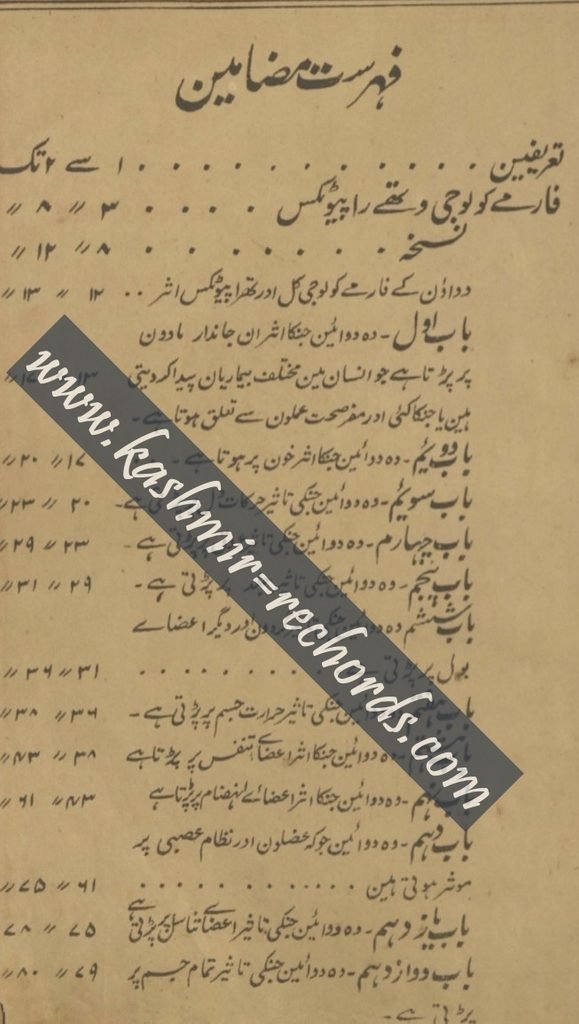 فہرست مضامین
تعریفین . . . . . . . . . . . ۱ سے ۲ تک
فارمے کولوجی وتھے راپیوٹکس . . . . . ۳ 〃 ۸ 〃
نسخہ . . . . . . . . . ۸ 〃 ۱۲ 〃
دداؤن کے فارمے کولوجی کل اور تھرا پیوٹکس اثر . . ۱۲ 〃 ۱۳ 〃
باب اول - وہ دوائین جنکا اثر ان جاندار مادون
پر پڑتا ہے جو انسان مین مختلف بیماریان پیدا کر دیتی ۱۳
ہین یا جنکا کئی اور مضر صحت عملون سے تعلق ہوتا ہے -
باب دوئم - وہ دوائین جنکا اثر خون پر ہوتا ہے - ۱۷ 〃 ۲۰ 〃
باب سوئم - وہ دوائین جنکی تاثیر حرکات ہے - ۲۰ 〃 ۲۳ 〃
باب چہارم - وہ دوائین جنکی پڑتی ہے - ۲۳ 〃 ۲۹ 〃
باب پنجم - وہ دوائین جنکی تاثیر پر پڑتی ہے - ۲۹ 〃 ۳۱ 〃
باب ششم وہ دوائین اور دیگر اعضاے
بول پر پڑتی . . . . . . . . ۳۱ 〃 ۳۶ 〃
باب دوائین جنکی تاثیر حرارت جسم پر پڑتی ہے - ۳۶ 〃 ۳۸ 〃
وہ دوائین جنکا اثر اعضاے تنفس پر پڑتا ہے ۳۸ 〃 ۴۳ 〃
نہم - وہ دوائین جنکا اثر اعضاے انہضام پر پڑتا ہے ۴۳ 〃 ۶۱ 〃
باب دہم - وہ دوائین جوکہ عضلون اور نظام عصبی پر
موثر ہوتی ہین . . . . . . . . . . . ۶۱ 〃 ۷۵ 〃
باب یازدہم - وہ دوائین جنکی تاثیر اعضاے تناسل پر پڑتی ہے ۷۵ 〃 ۷۸ 〃
باب دوازدہم - وہ دوائین جنکی تاثیر تمام جسم پر ۷۹ 〃 ۸۰ 〃
پڑتی ہے -
www.kashmir=rechords.com